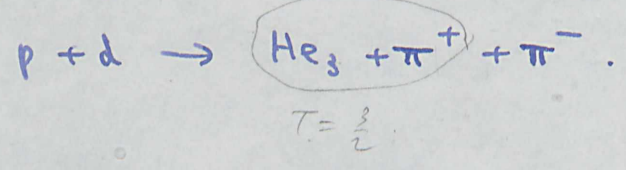 p + d → He₃ + π⁺ + π⁻.
T = 3/2.